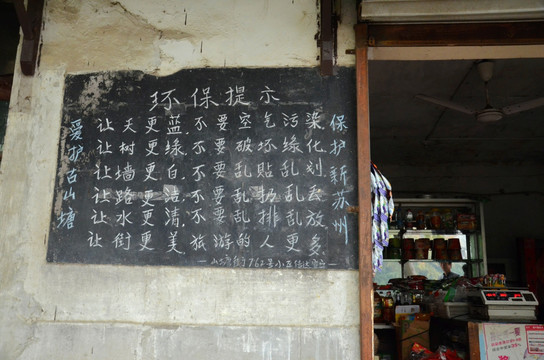 环保提示
保护新苏州
让天更蓝.不要空气污染
让树更绿.不要破坏绿化
让墙更白.不要乱贴乱划
让路更洁.不要乱扔乱丢
让水更清.不要乱排乱放
让街更美.旅游的人更多
爱护古山塘